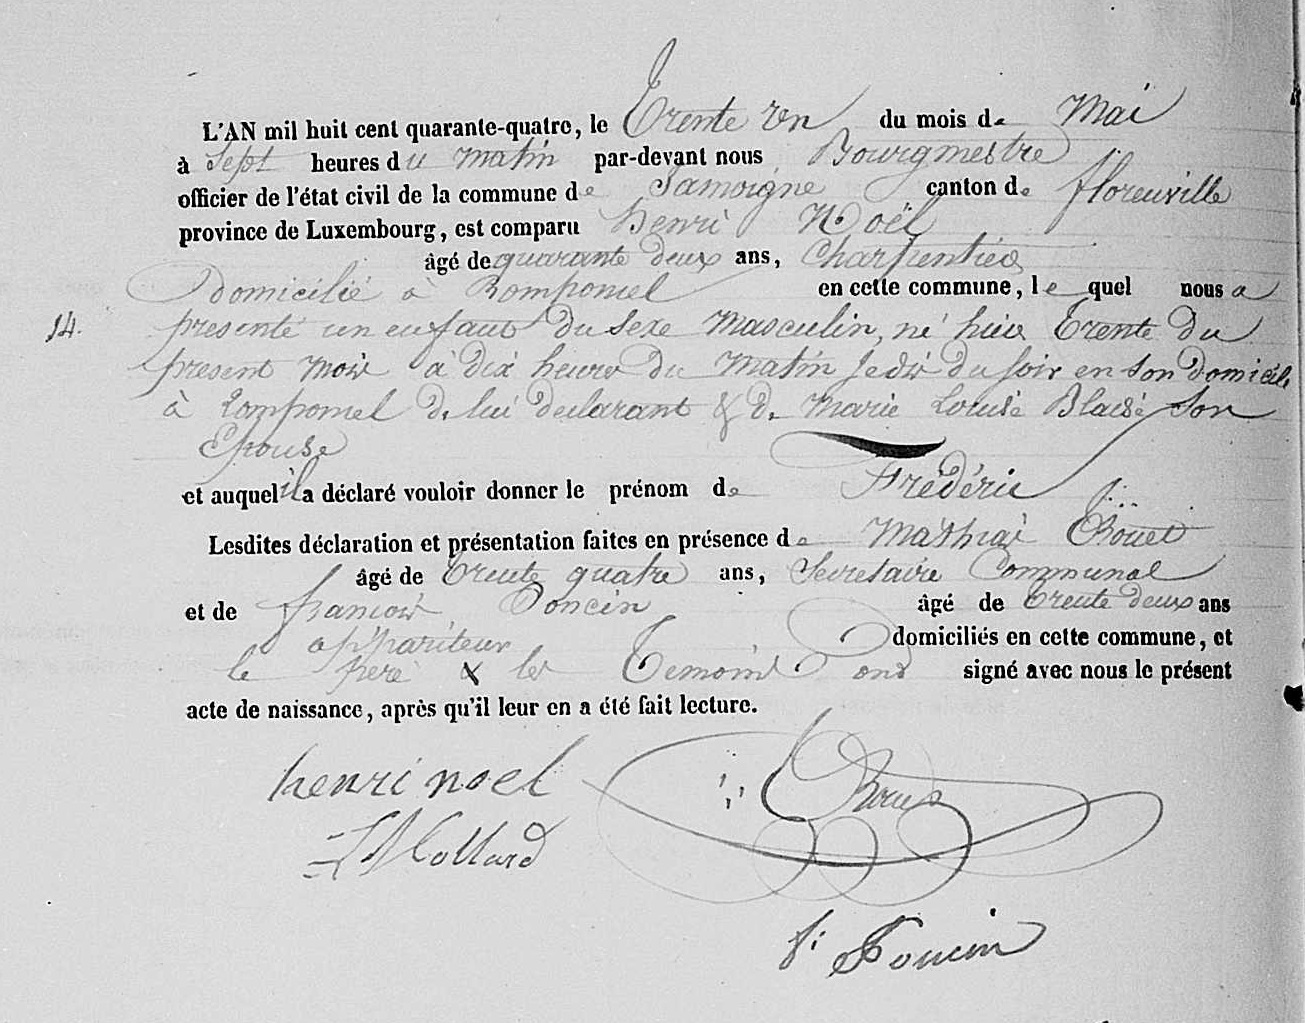 L'AN mil huit cent quarante-quatre, le Trente un du mois de Mai
à Sept heures du matin par-devant nous Bourgmestre
officier de l'état civil de la commune de Jamoigne canton de florenville
province de Luxembourg, est comparu henri Noël
âgé de quarante deux ans, Charpentier
Domicilié à Romponcel en cette commune, le quel nous a
14. présenté un enfant du Sexe Masculin, né hier Trente du
present mois à dix heures du Matin du soir en son domicile
à Romponcel de lui declarant & de Marie Louise Blaise son
Epouse
et auquel il a déclaré vouloir donner le prénom de Frédéric
Lesdites déclaration et présentation faites en présence de Mathias
âgé de trente quatre ans, Secretaire Communal
et de francois Poncin âgé de trente deux ans
appariteur domiciliés en cette commune, et
le père & les Temoins ont signé avec nous le présent
acte de naissance, après qu'il leur en a été fait lecture.
henri noel
Collard
f: Poncin